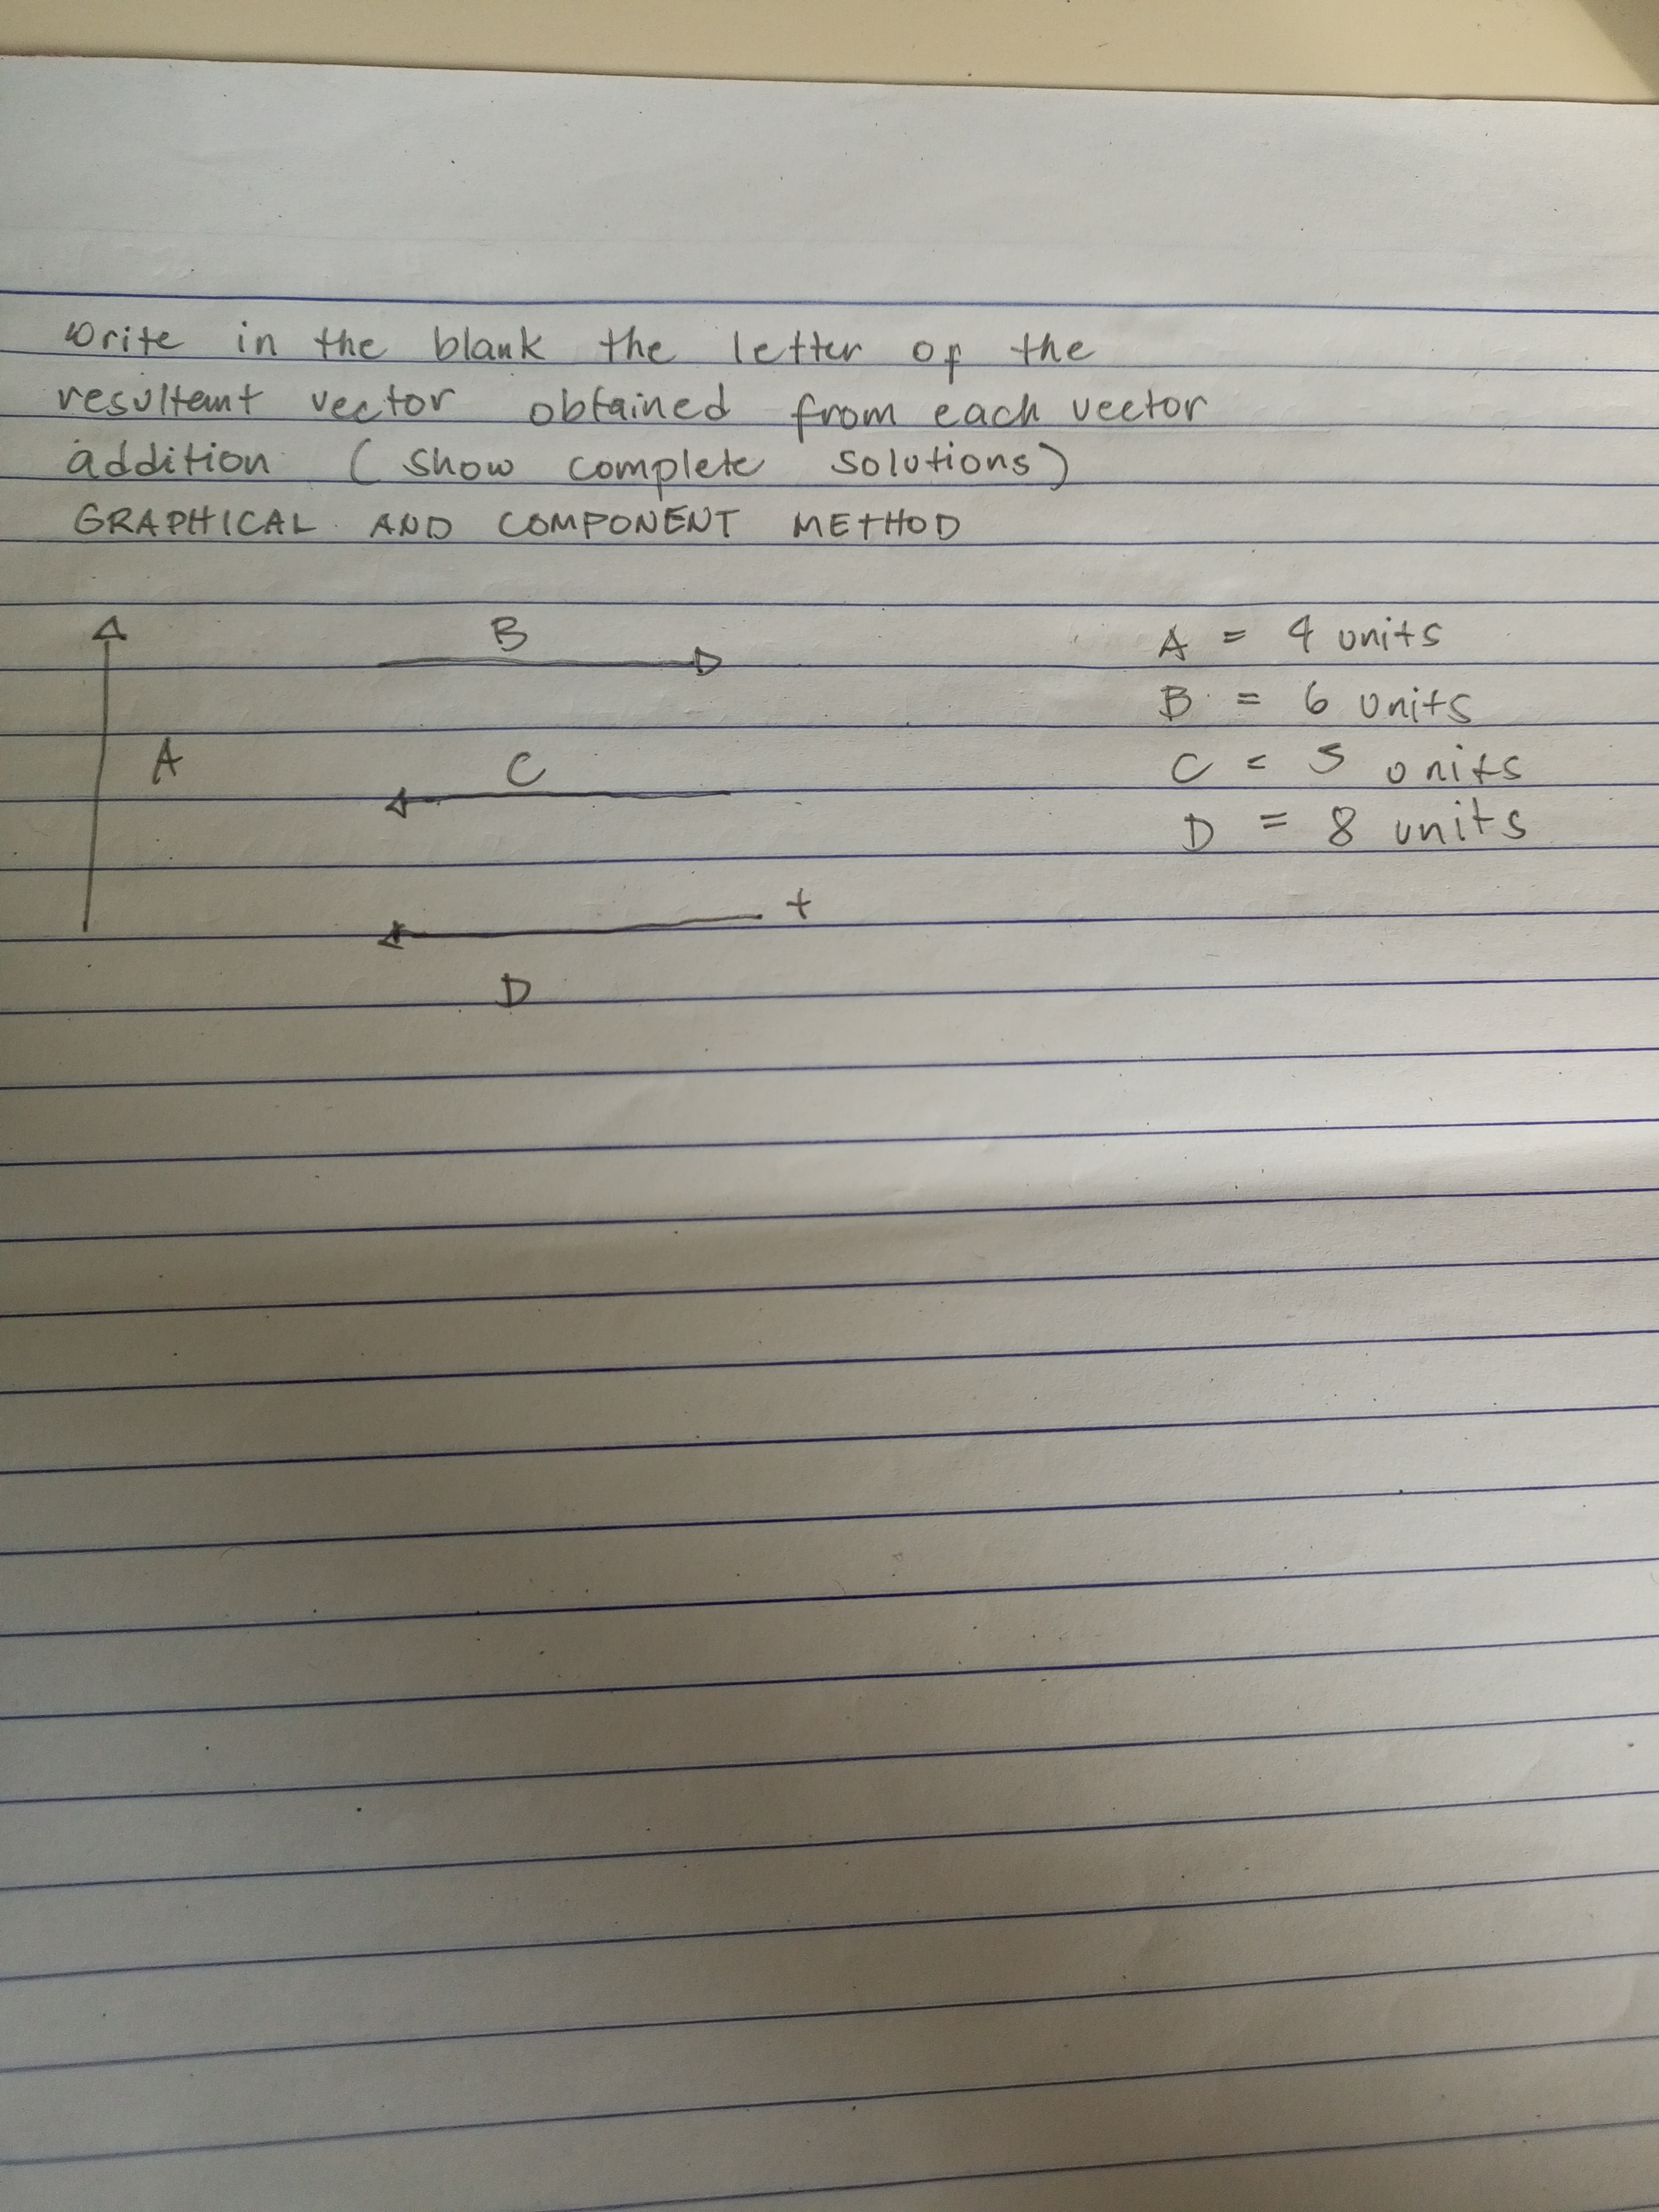 write in the blank the letter of the
resultant vector obtained from each vector
addition (show complete solutions)
GRAPHICAL AND COMPONENT METHOD
B
A = 4 units
B = 6 units
A
C
C = 5 units
D = 8 units
+
D